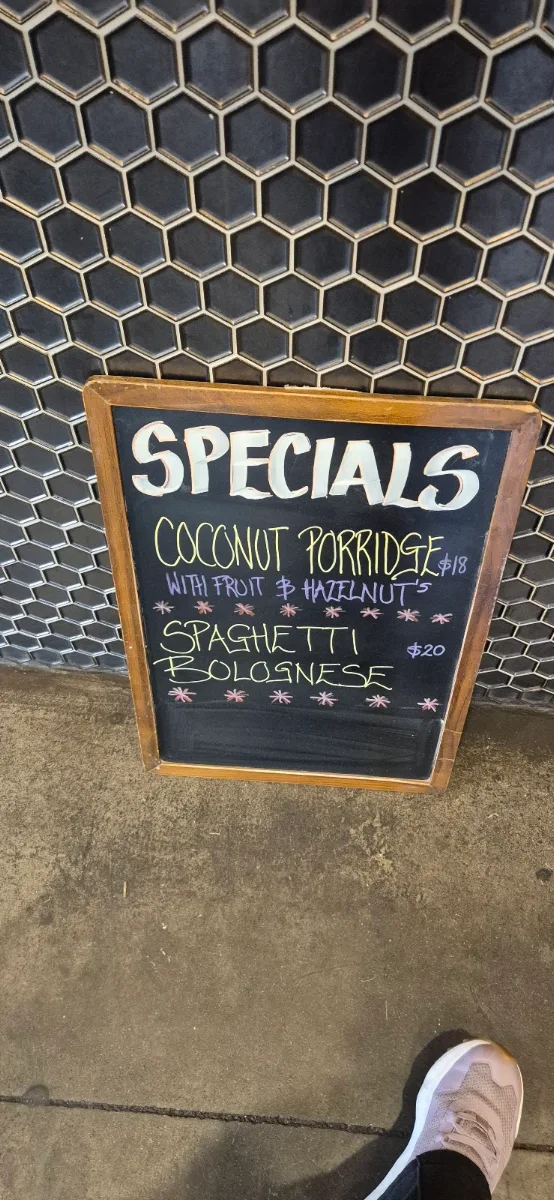 SPECIALS
COCONUT PORRIDGE $18
WITH FRUIT & HAZELNUT'S
SPAGHETTI $20
BOLOGNESE